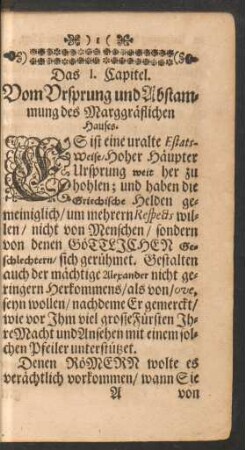 ) 1 (
Das 1. Capitel.
Vom Vrsprung und Abstam-
mung des Marggräflichen
Hauses.
ES ist eine uralte Estats-
Weise, Hoher Häupter
Ursprung weit her zu
hohlen; und haben die
Griechische Helden ge-
meiniglich / um mehrern Respects wil-
len / nicht von Menschen / sondern
von denen GÖTTLICHEN Ge-
schlechtern / sich gerühmet. Gestalten
auch der mächtige Alexander nicht ge-
ringern Herkommens / als von Jove,
seyn wollen / nachdeme Er gemerckt /
wie vor Ihm viel grosse Fürsten Ih-
re Macht und Ansehen mit einem sol-
chen Pfeiler unterstützet.
Denen RöMERN wolte es
verächtlich vorkommen / wann Sie
A von